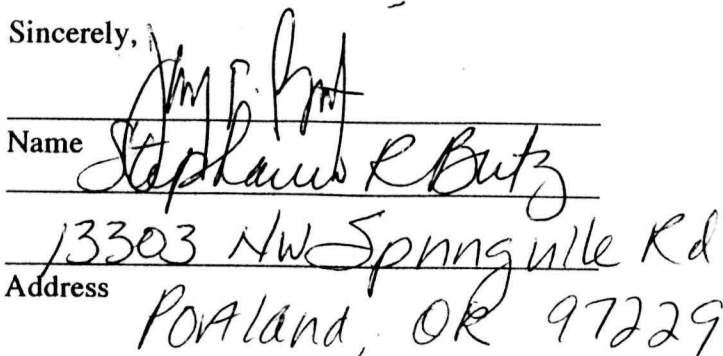 Sincerely,
Name Stephanie R Butz
13303 NW Springville Rd
Address
Portland, OR 97229